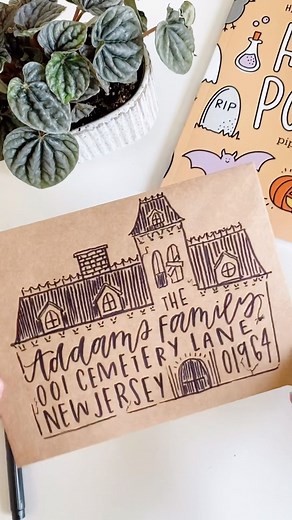 THE
Addams Family
001 CEMETERY LANE
NEW JERSEY 01964
RIP
PO
pip